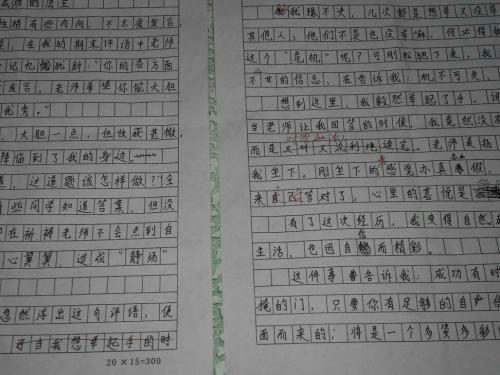 成功的法宝
性格有些内向，不太爱发言
是，在我的期末评语中老师
记忆犹新："你的各方面
发言。老师希望你能大胆
优秀。"
大胆一点，但收获甚微。
降临到了我的身边
道，这道题该怎样做？"全
有些同学知道答案，但没
都在祈祷老师不会点到自
心翼翼，造成"静场"
忽然浮出这句评语，使
于当我想举起手的时
20×15=300
机不失，几次都是想举又没举
其他人，他们不是也没举嘛，何必得
这个"危机"呢？可刚松驰下来，我
不甘的信念，在告诉我：机不可失，
想到这里，我毅然举起了手。
当老师让我回答的时候，我竟然没有
而是又对又流利地读完。老师表扬
我坐下。刚坐下的感觉亦真亦假，
来自己答对了，心里的喜悦是
有了这次经历，我变得自然
生活，也因自信而精彩。
这件事告诉我：成功有时
掩的门，只要你有足够的自信
面而来的，将是一个多姿多彩